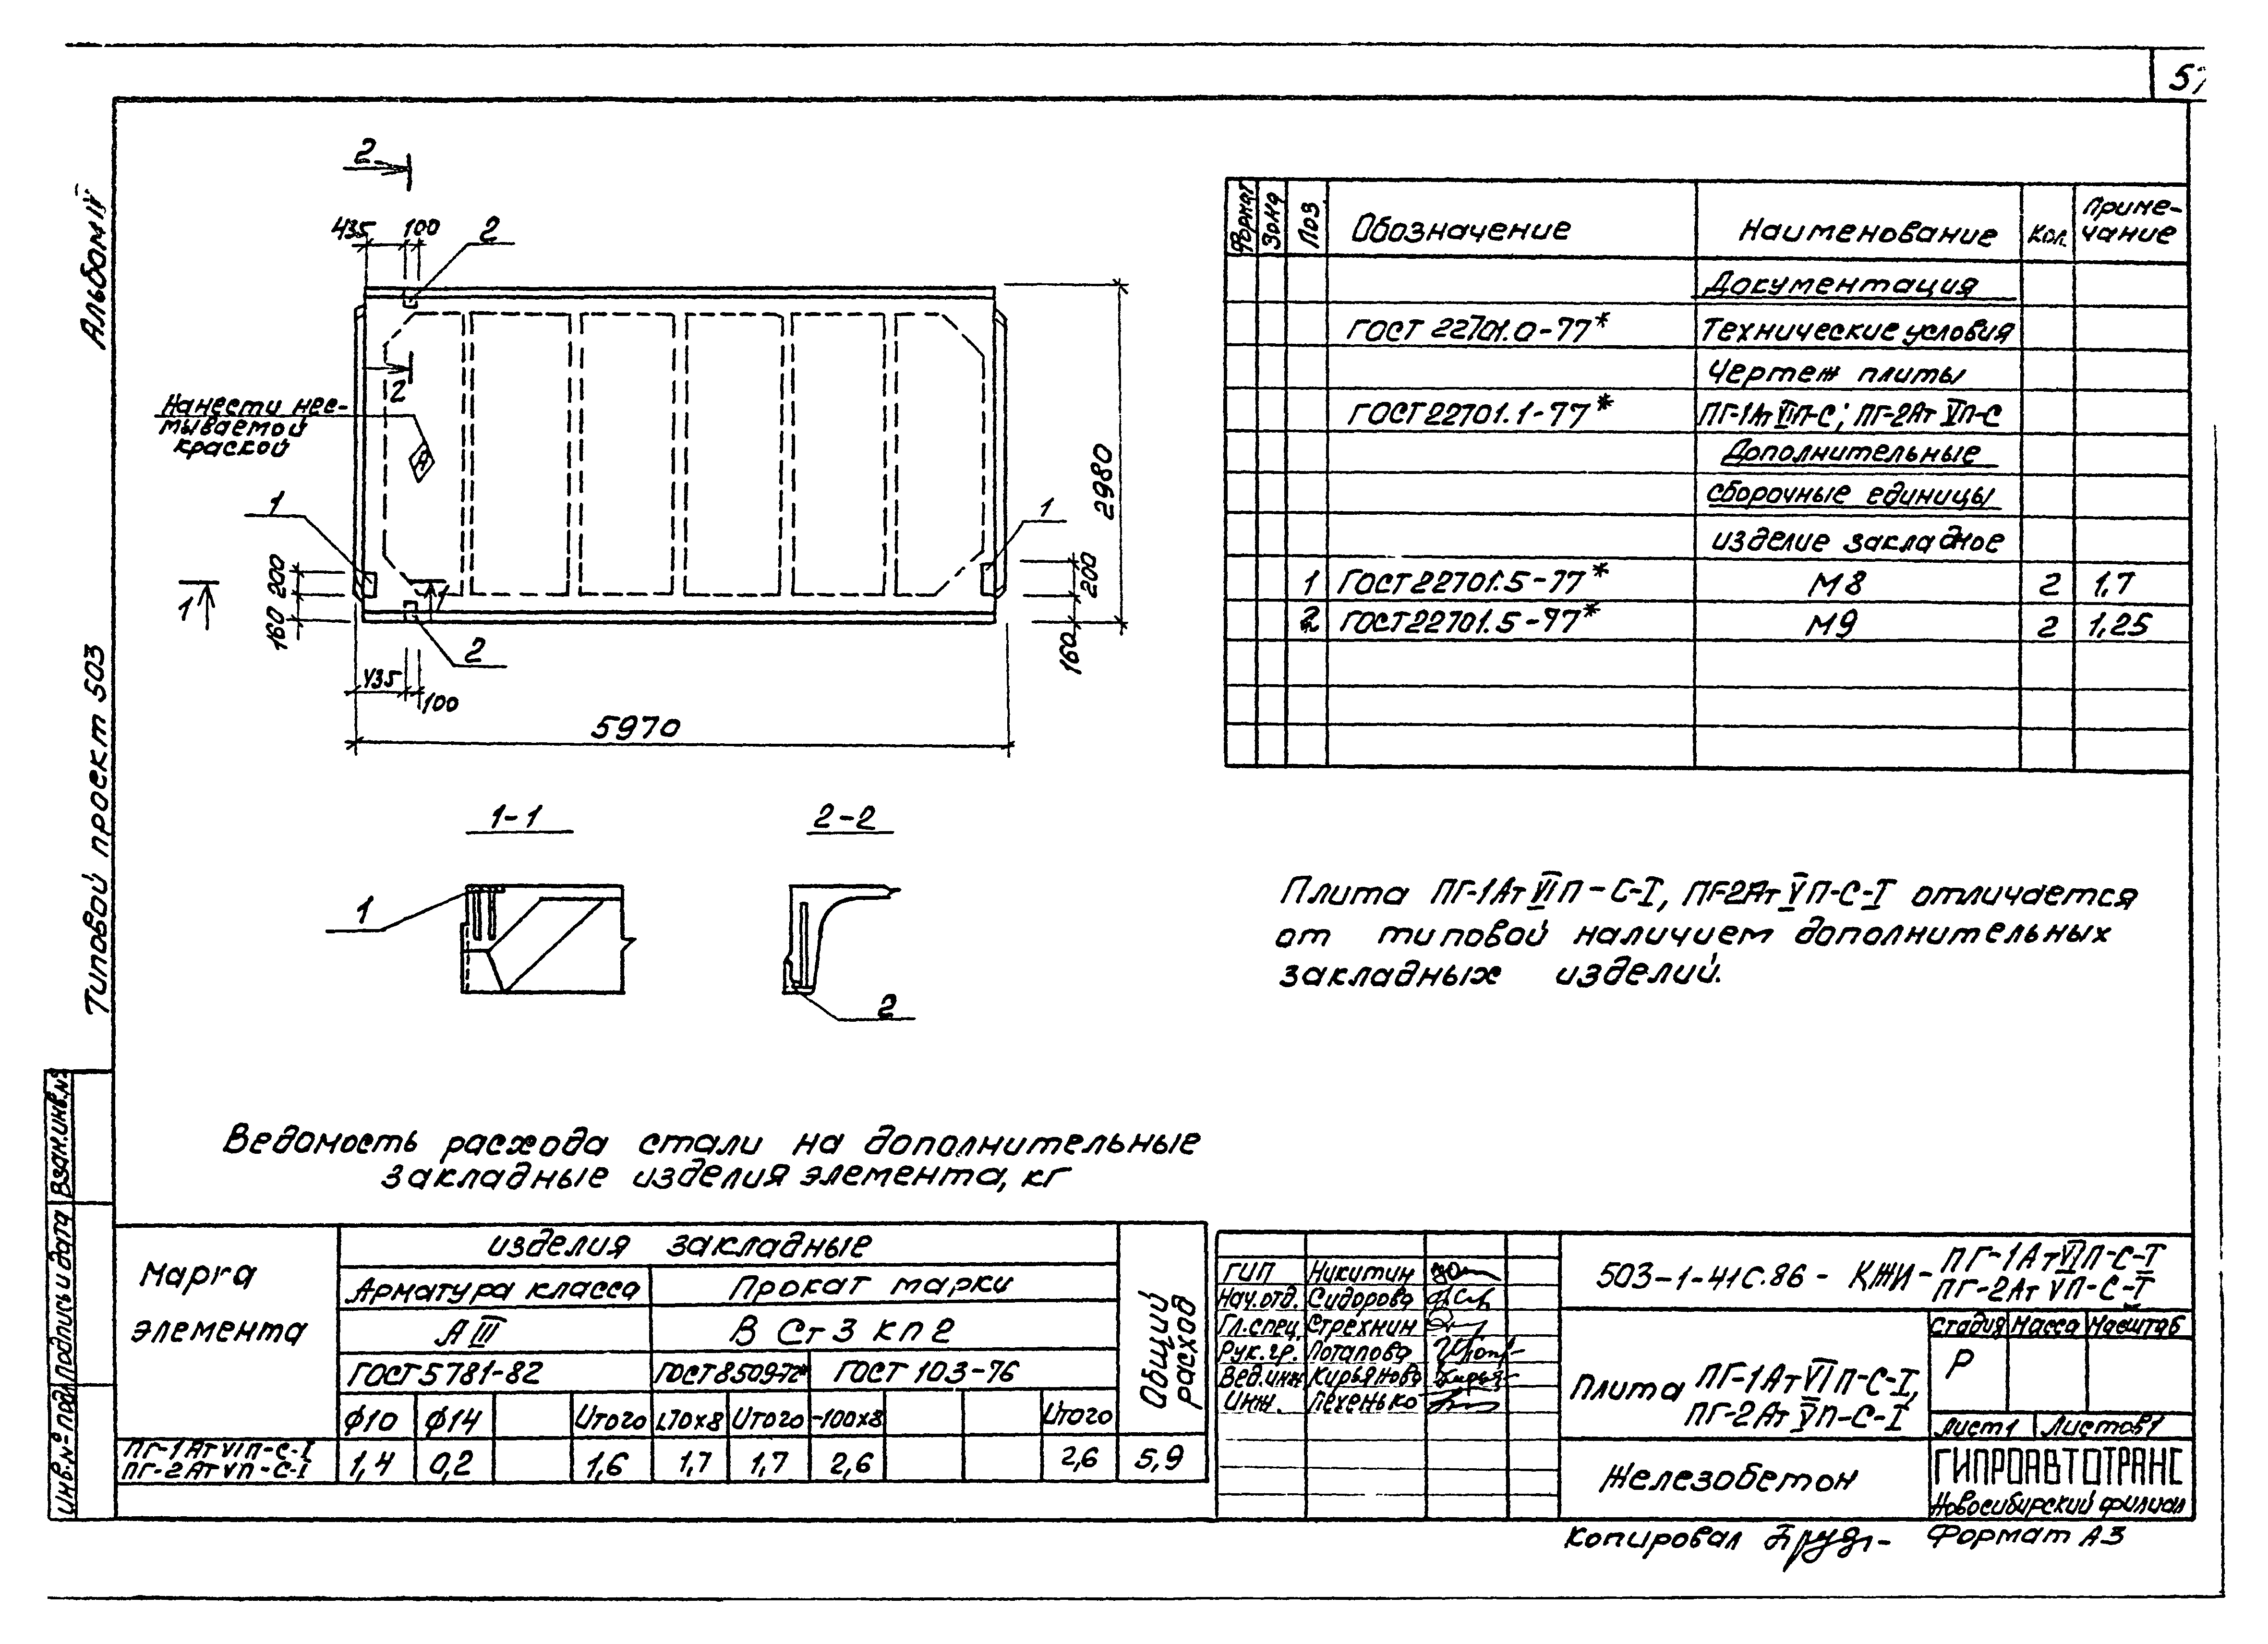 57
Альбом IV
Типовой проект 503
Взам.инв.№
Подпись и дата
Инв.№ подл
2
435 100 2
2
Нанести нес-
мываемой
краской
А
1
1
2980
200
160
200
160
1
1
2
435
100
5970
1-1
2-2
1
2
Формат Зона Поз. Обозначение Наименование Кол. Приме-
чание
Документация
ГОСТ 22701.0-77* Технические условия
Чертеж плиты
ГОСТ 22701.1-77* ПГ-1Ат VIП-С; ПГ-2Ат VП-С
Дополнительные
сборочные единицы
изделие закладное
1 ГОСТ 22701.5-77* М8 2 1,7
2 ГОСТ 22701.5-77* М9 2 1,25
Плита ПГ-1Ат VIП-С-I, ПГ-2Ат VП-С-I отличается
от типовой наличием дополнительных
закладных изделий.
Ведомость расхода стали на дополнительные
закладные изделия элемента, кг
Марка
элемента
изделия закладные
Общий
расход
Арматура класса Прокат марки
А III В Ст3 кп2
ГОСТ 5781-82 ГОСТ 8509-72* ГОСТ 103-76
Ф10 Ф14 Итого L70х8 Итого -100х8 Итого
ПГ-1Ат VIП-С-I
ПГ-2Ат VП-С-I
1,4 0,2 1,6 1,7 1,7 2,6 2,6 5,9
ГИП Никитин
Нач.отд. Сидорова
Гл.спец. Стрехнин
Рук.гр. Потапова
Вед.инж Кирьянова
Инж. Пехенько
503-1-41с.86 - КЖИ- ПГ-1Ат VIП-С-I
ПГ-2Ат VП-С-I
Плита ПГ-1Ат VIП-С-I,
ПГ-2Ат VП-С-I
Стадия Масса Масштаб
Р
Лист 1 Листов 1
Железобетон
ГИПРОАВТОТРАНС
Новосибирский филиал
Копировал Формат А3